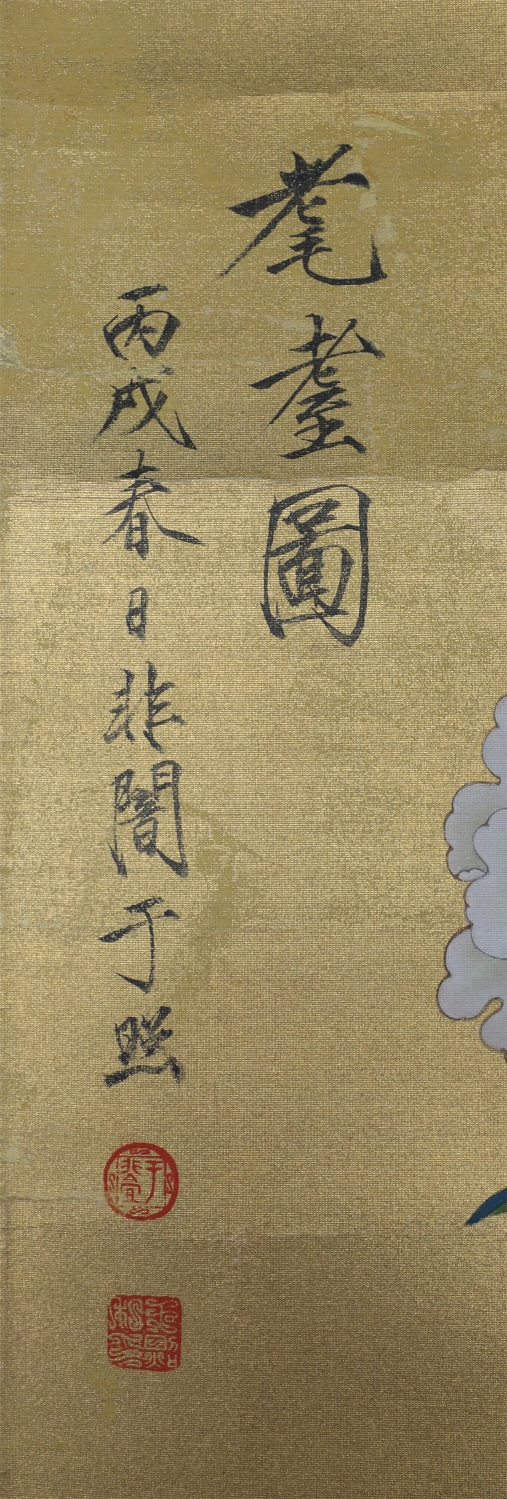 耄耋圖
丙戌春日非闇于照